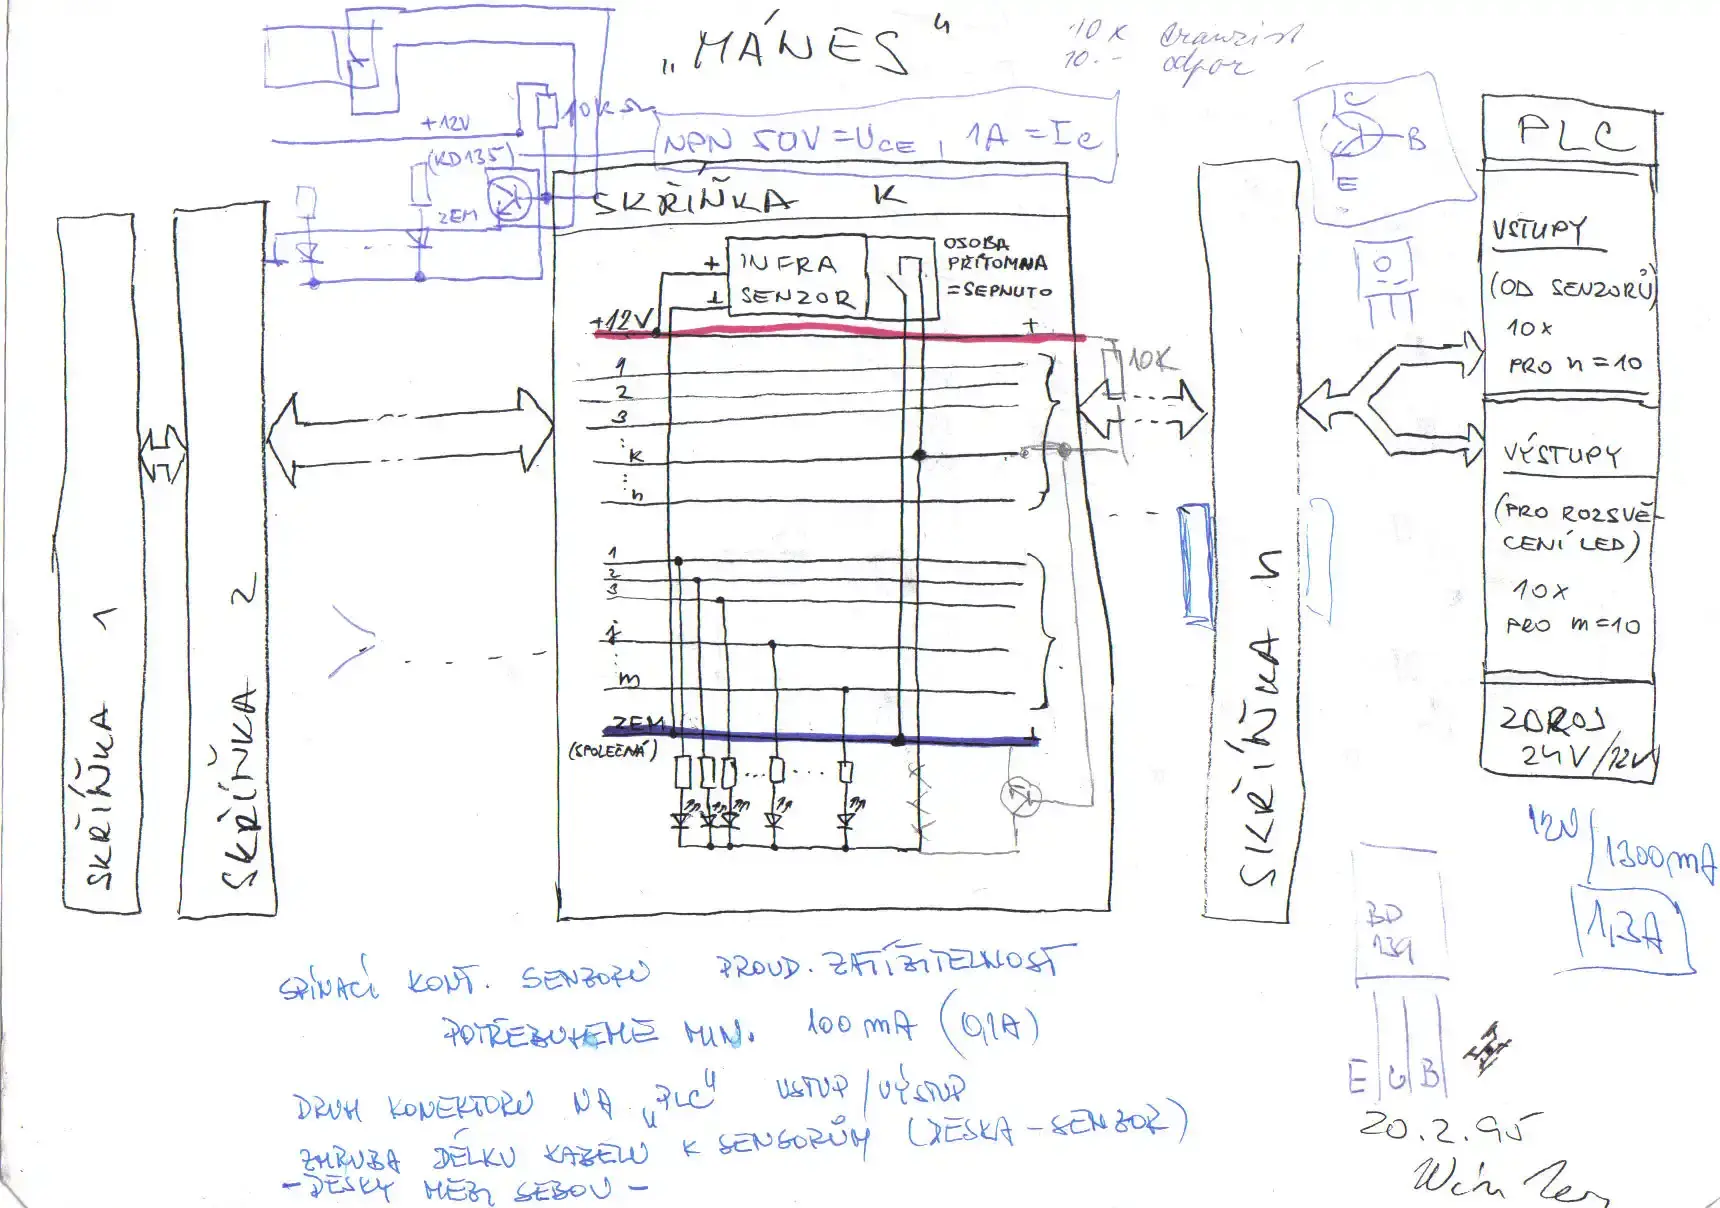 „MÁNES“
10x tranzist
10.- odpor
+12V
10K
(KD135)
NPN 50V = UCE, 1A = IC
ZEM
C
B
E
SKŘÍŇKA K
INFRA
SENZOR
+
⊥
OSOBA
PŘÍTOMNA
= SEPNUTO
+12V
+
10K
1
2
3
k
n
1
2
3
j
m
ZEM
(SPOLEČNÁ)
⊥
SKŘÍŇKA 1
SKŘÍŇKA 2
SKŘÍŇKA n
PLC
VSTUPY
(OD SENZORŮ)
10x
PRO n=10
VÝSTUPY
(PRO ROZSVĚ-
CENÍ LED)
10x
PRO m=10
ZDROJ
24V/12V
12V/1300mA
1,3A
BD
139
E C B
SPÍNACÍ KONT. SENZORU PROUD. ZATÍŽITELNOST
POTŘEBUJEME MIN. 100mA (0,1A)
DRUH KONEKTORU NA „PLC“ VSTUP/VÝSTUP
ZHRUBA DÉLKU KABELU K SENSORŮM (DESKA-SENZOR)
-DESKY MEZI SEBOU-
20.2.95